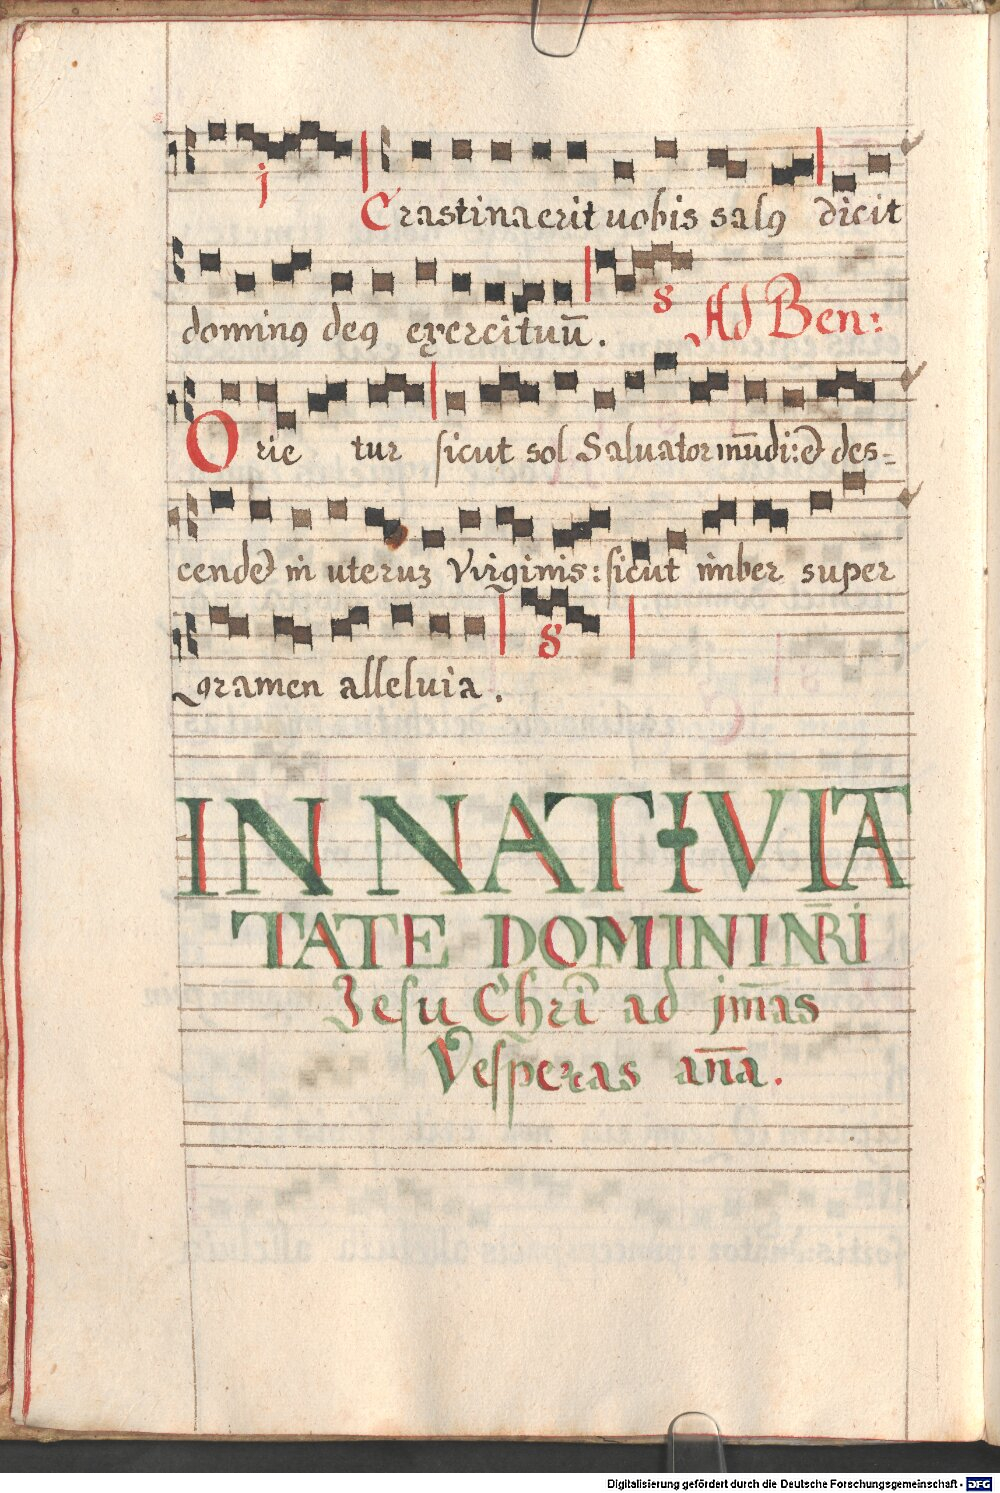 j Crastina erit uobis salꝯ dicit
dominꝯ deꝯ exercituū. s Ad Ben:
Orietur sicut sol Saluator mūdi: et des=
cendet in uteruʒ Virginis: sicut imber super
gramen alleluia. s
IN NATIVITA
TATE DOMINI NR̄I
Jesu Chr̄i ad jm̄as
Vesperas an̄a.
Digitalisierung gefördert durch die Deutsche Forschungsgemeinschaft - DFG